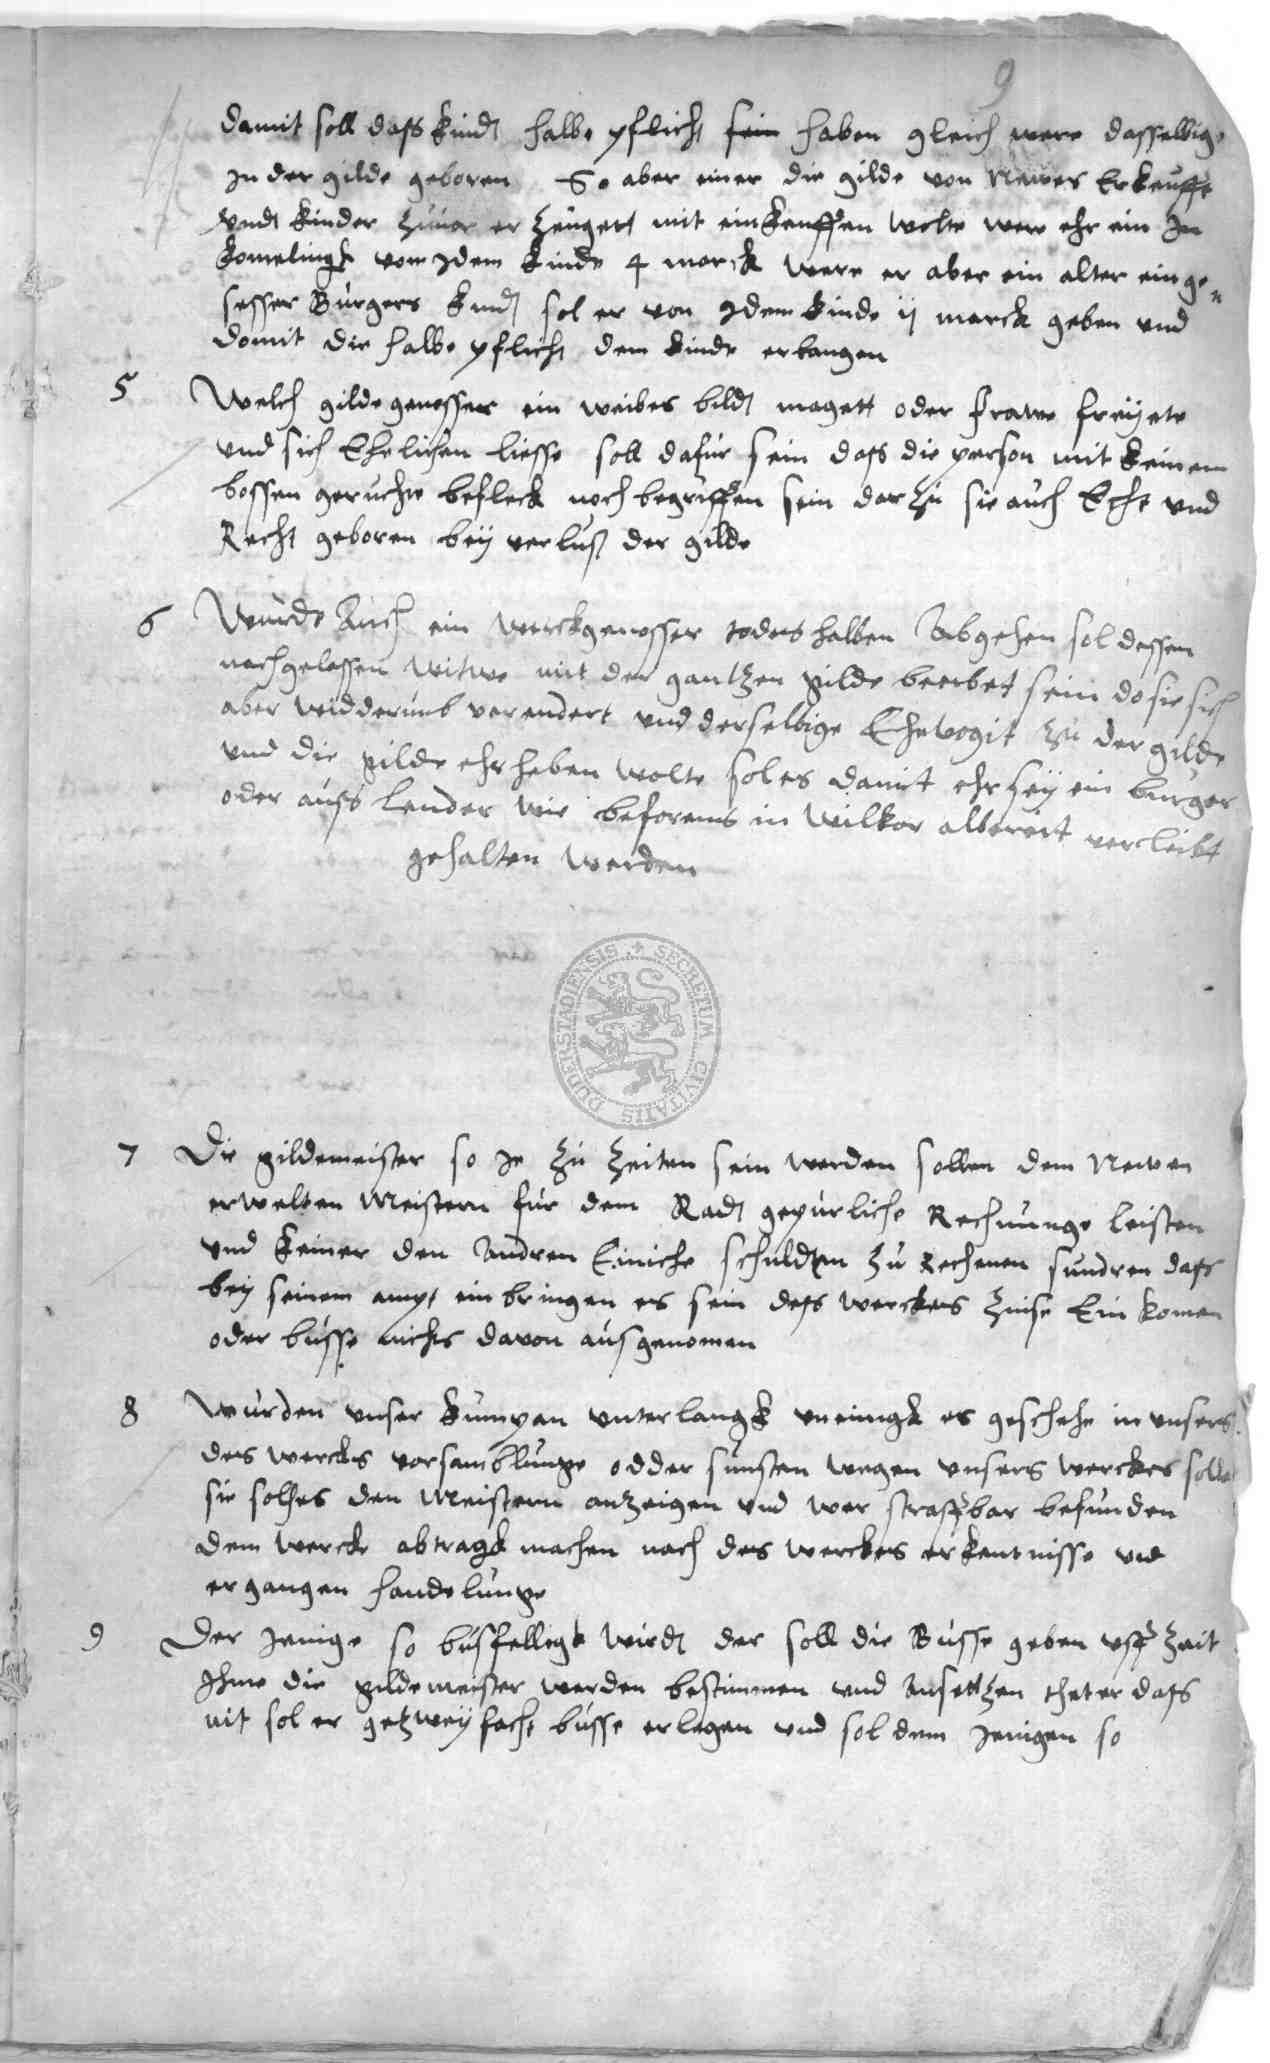 9
damit soll dass kindt halbe pflicht sein haben gleich were dasselbige
in der gilde geboren So aber einer die gilde von Newes Erkeuffte
undt kinder zuuor erzeugett mit einkeuffen wolte wer ehr ein In
komelingk vom Idem kinde 4 marck were er aber ein alter einge
sesser Burgers kindt sol er von Idem kinde ij marck geben und
domit die halbe pflicht dem kinde erlangen
5 Welch gildegenosser ein weibes bildt magett oder frawe freyete
und sich Ehelichen liesse soll dafur sein dass die person mit keinem
bossen geruchte befleck noch begriffen sein darzu sie auch Echt und
Recht geboren bey verlust der gilde
6 Wurde Auch ein werckgenosser todes halben Abgehen sol dessen
nachgelassen witwe mit der gantzen gilde beerbet sein do sie sich
aber widderumb verendert und derselbige Ehevogit zu der gilde
und die gilde ehr heben wolte sol es damit ehr sey ein burger
oder auss lender wie beforens in wilkor albereit verleibt
gehalten werden
DUDERSTADIENSIS + SECRETUM CIVITATIS
7 Die gildemeister so Je zu zeiten sein werden sollen dem Newen
erwelten Meistern fur dem Radt gepurliche Rechnunge leisten
und keiner den Andren Einiche schulden zu Rechenen sundren dass
bey seinem ampt einbringen es sein dess werckes zinse Ein komen
oder busse nichts davon ausgenomen
8 Wurden unser kumpan unterlangk uneinigk es geschehe in unsers
des wercks vorsamblunge odder sunsten wegen unsers werckes solle
sie solhes den Meistern anzeigen und wer straffbar befunden
dem wercke abtragk machen nach des werckes erkentnisse und
ergangen handelunge
9 Der Jenige so busfellegk wirdt der soll die Busse geben uff zeit
Ihme die gildemeister werden bestimmen und Ansettzen thet er dass
nit sol er getzweyfacht busse erlegen und sol dem Jenigen so